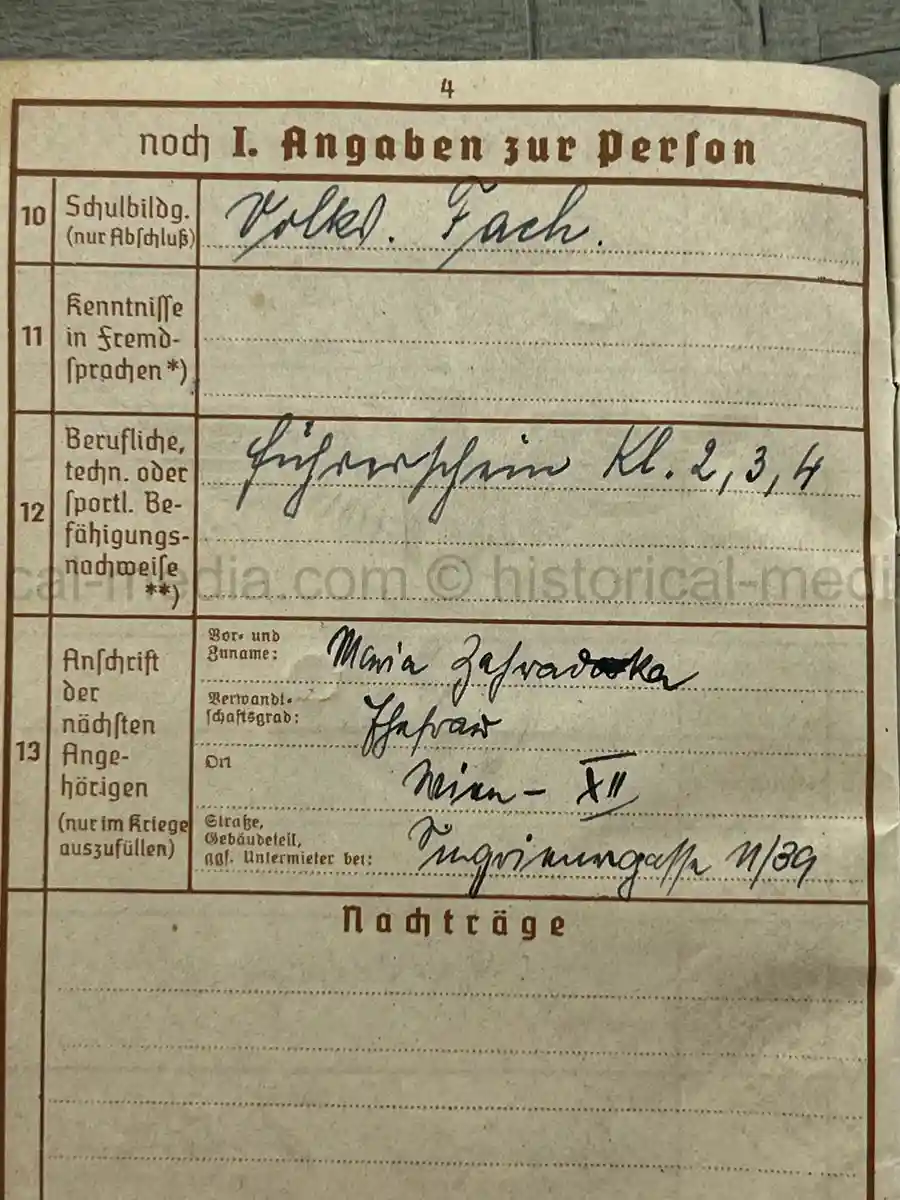 4
noch I. Angaben zur Person
10 Schulbildg. (nur Abschluß) Volks. Fach.
11 Kenntnisse in Fremdsprachen *)
12 Berufliche, techn. oder sportl. Befähigungsnachweise **)
Führerschein Kl. 2, 3, 4
cal-media.com © historical-medi
13 Anschrift der nächsten Angehörigen (nur im Kriege auszufüllen)
Vor- und Zuname: Maria
Verwandtschaftsgrad: Ehefrau
Ort Wien - XII
Straße, Gebäudeteil, ggf. Untermieter bei: 11/39
Nachträge